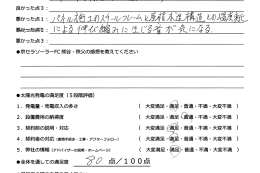 良かった点3：
悪かった点1： パネル押さえのスチールフレームと屋根木造構造との温度
悪かった点2： による伸び縮みに生じる音が気になる
悪かった点3：
●京セラソーラーFC 熊谷・秩父の感想を教えてください
●太陽光発電の満足度（5段階評価）
1．発電量・売電収入の多さ （ 大変満足・満足・普通・不満・大変不満 ）
2．設置費用の納得度 （ 大変満足・満足・普通・不満・大変不満 ）
3．契約前の説明・対応 （ 大変満足・満足・普通・不満・大変不満 ）
4．契約後の応対（運用・申請・工事・アフターフォロー） （ 大変満足・満足・普通・不満・大変不満 ）
5．弊社の情報（アドバイザーの説明・ホームページ） （ 大変満足・満足・普通・不満・大変不満 ）
●全体を通しての満足度 80 点／100点